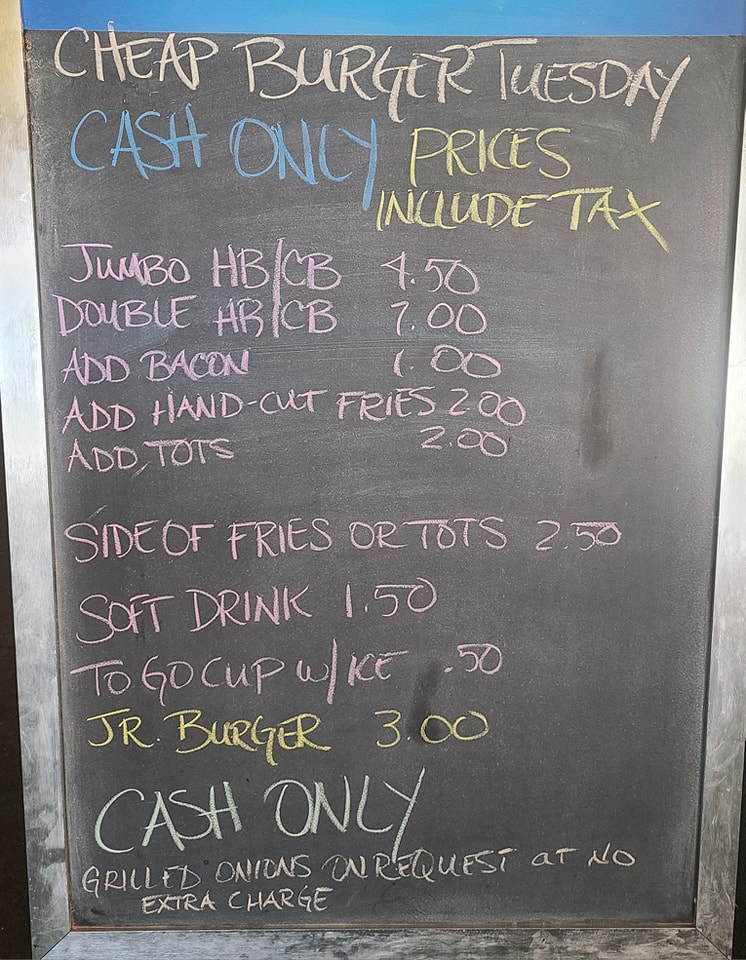 CHEAP BURGER TUESDAY
CASH ONLY PRICES
INCLUDE TAX
JUMBO HB/CB 4.50
DOUBLE HB/CB 7.00
ADD BACON 1.00
ADD HAND-CUT FRIES 2.00
ADD TOTS 2.00
SIDE OF FRIES OR TOTS 2.50
SOFT DRINK 1.50
TO GO CUP W/ICE .50
JR. BURGER 3.00
CASH ONLY
GRILLED ONIONS ON REQUEST at NO
EXTRA CHARGE